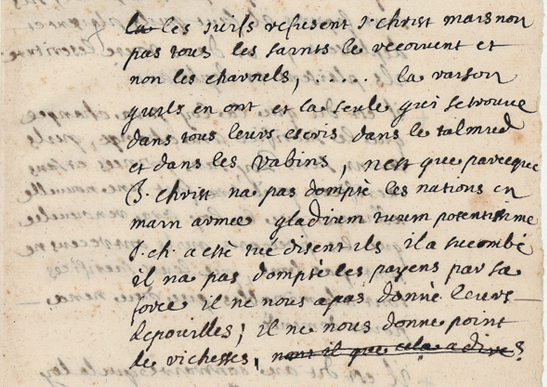 les juifs refusent J. christ mais non
pas tous les saints le recoivent et
non les charnels, ...... la raison
quils en ont et la seule qui se trouve
dans tous leurs escris dans le talmud
et dans les rabins, nest que parceque
J. christ na pas dompté les nations en
main armee gladium tuum potentissime
J. ch. a esté tué disent ils il a sucombé
il na pas dompté les payens par sa
force il ne nous a pas donné leurs
depouilles; il ne nous donne point
de richesses, nont il que cela a dire?